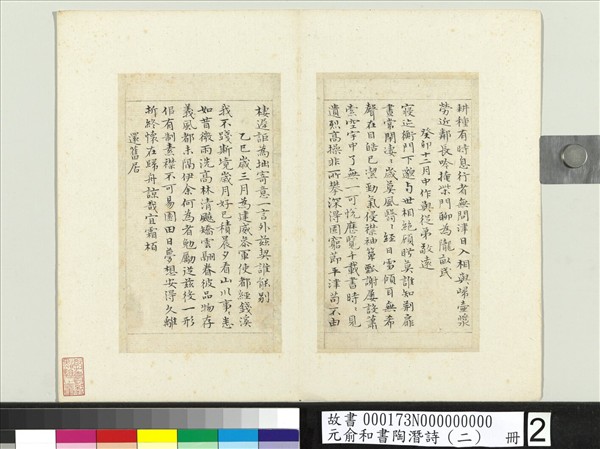 耕種有時息行者無問津日入相與歸壺漿
勞近鄰長吟掩柴門聊為隴畝民
癸卯十二月中作與從弟敬遠
寢迹衡門下邈與世相絕顧眄莫誰知荊扉
晝常閉淒〻歲莫風翳〻經日雪傾耳無希
聲在目皓已潔勁氣侵襟袖簞瓢謝屢設蕭
索空宇中了無一可悅歷覽千載書時〻見
遺烈高操非所攀深得固窮節平津苟不由
棲遲詎為拙寄意一言外茲契誰能別
乙巳歲三月為建威參軍使都經錢溪
我不踐斯境歲月好已積晨夕看山川事〻悉
如昔微雨洗高林清飈矯雲翮眷彼品物存
義風都未隔伊余何為者勉勵從茲役一形
佀有制素襟不可易園田日夢想安得久離
析終懷在歸舟諒哉宜霜柏
還舊居
故書 000173N000000000
元俞和書陶潛詩(二) 冊 2